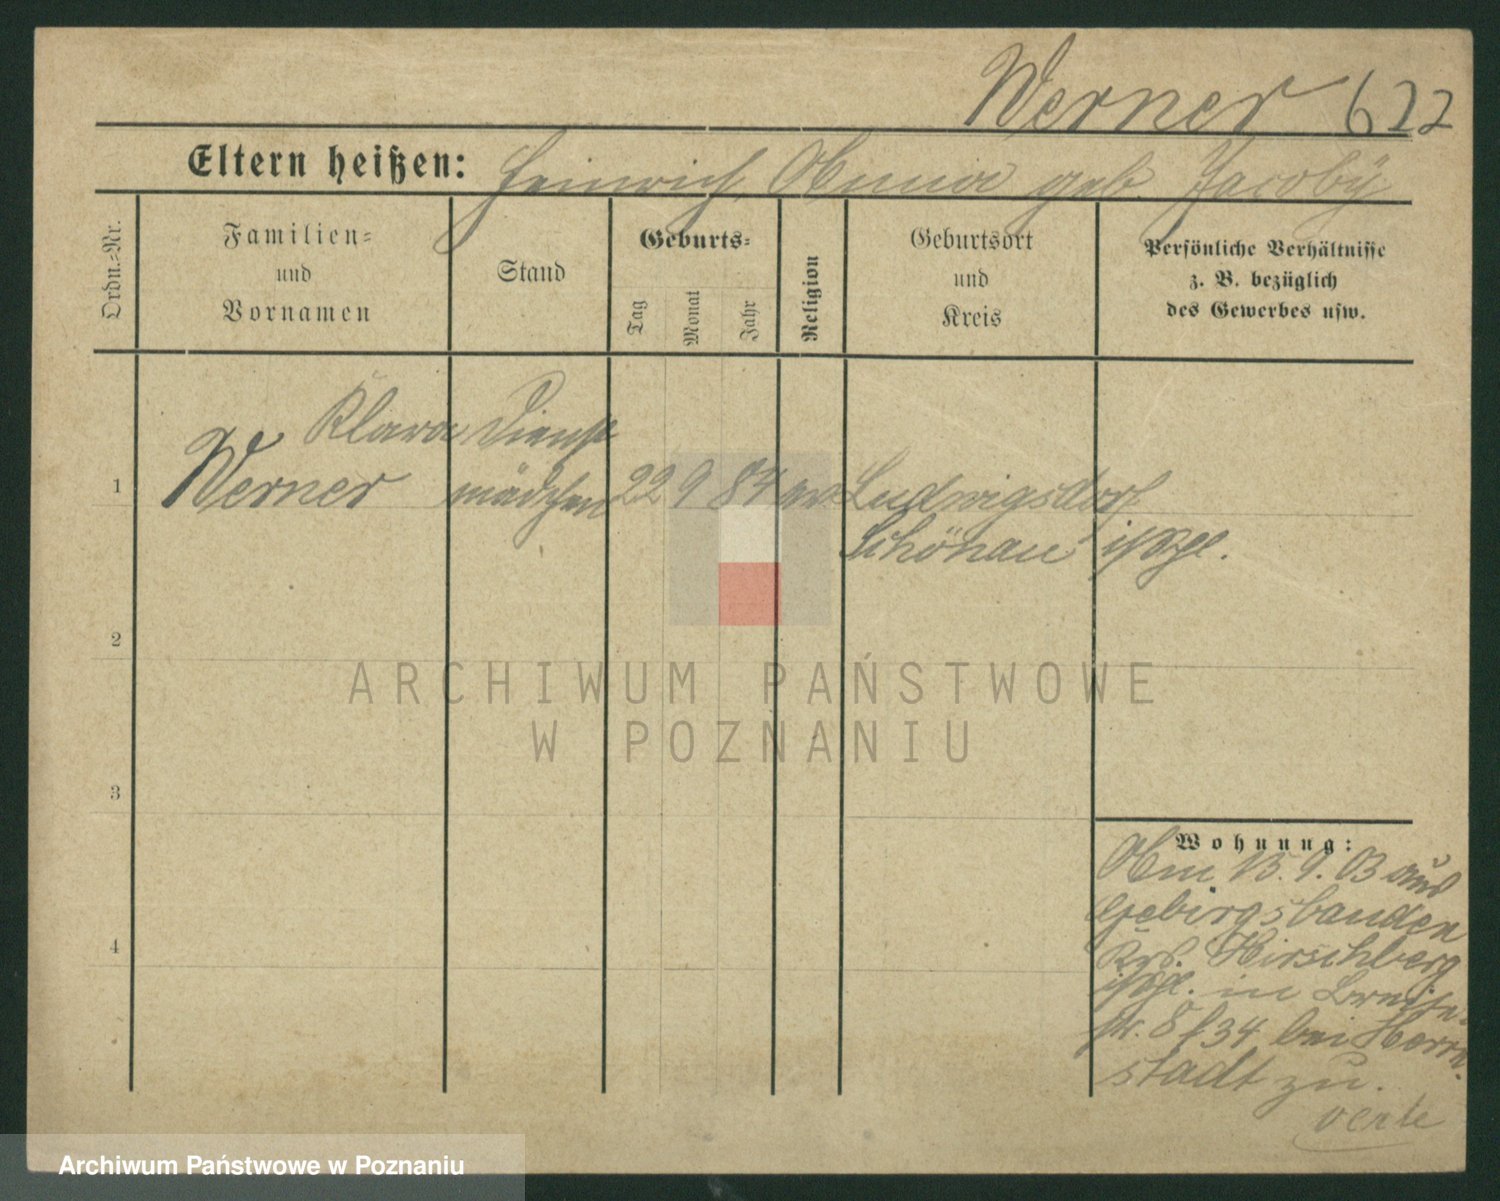 Werner 622
Eltern heißen: Heinrich, Anna geb. Jacoby
Ordn.-Nr.
Familien-
und
Vornamen
Stand
Geburts-
Tag
Monat
Jahr
Religion
Geburtsort
und
Kreis
Persönliche Verhältnisse
z. B. bezüglich
des Gewerbes usw.
Klara Dienst
1 Werner mädchen 22 9 84 ev Ludwigsdorf
Schönau i/Schl.
2
3
4
Wohnung:
Am 15.9.03 aus
Gebirgsbauden
Krs. Hirschberg
i/Schl. in
str. 8 34 bei Herrn-
stadt zu.
verte
ARCHIWUM PAŃSTWOWE
W POZNANIU
Archiwum Państwowe w Poznaniu